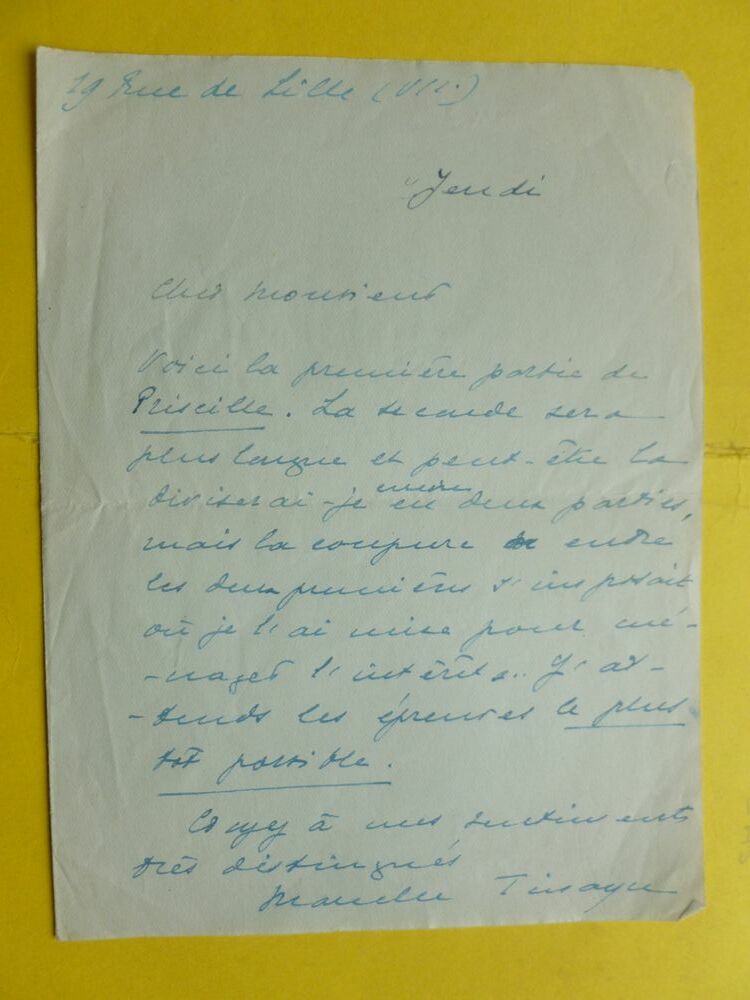 29 Rue de Lille (VIIe)
Jeudi
Cher Monsieur
Voici la première partie de
Priscille. La seconde sera
plus longue et peut-être la
diviserai-je encore en deux parties,
mais la coupure entre
les deux premières s'imposait
où je l'ai mise pour mé-
-nager l'intérêt... J'at-
-tends les épreuves le plus
tôt possible.
Croyez à mes sentiments
très distingués
Marcelle Tinayre